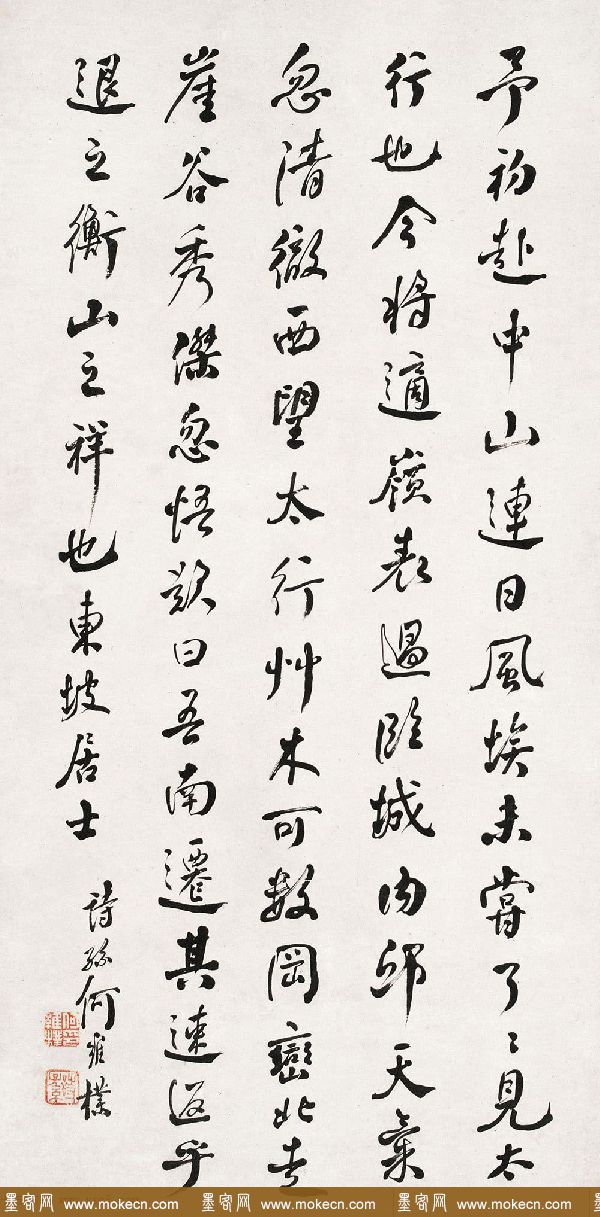 予初赴中山連日風埃未嘗了〻見太
行也今將適嶺表過臨城內邱天氣
忽清徹西望太行艸木可數岡巒北走
崖谷秀傑忽悟歎曰吾南遷其速返乎
退之衡山之祥也東坡居士
詩孫何維樸
墨客网 www.mokecn.com 墨客网 www.mokecn.com 墨客网 www.mokecn.com